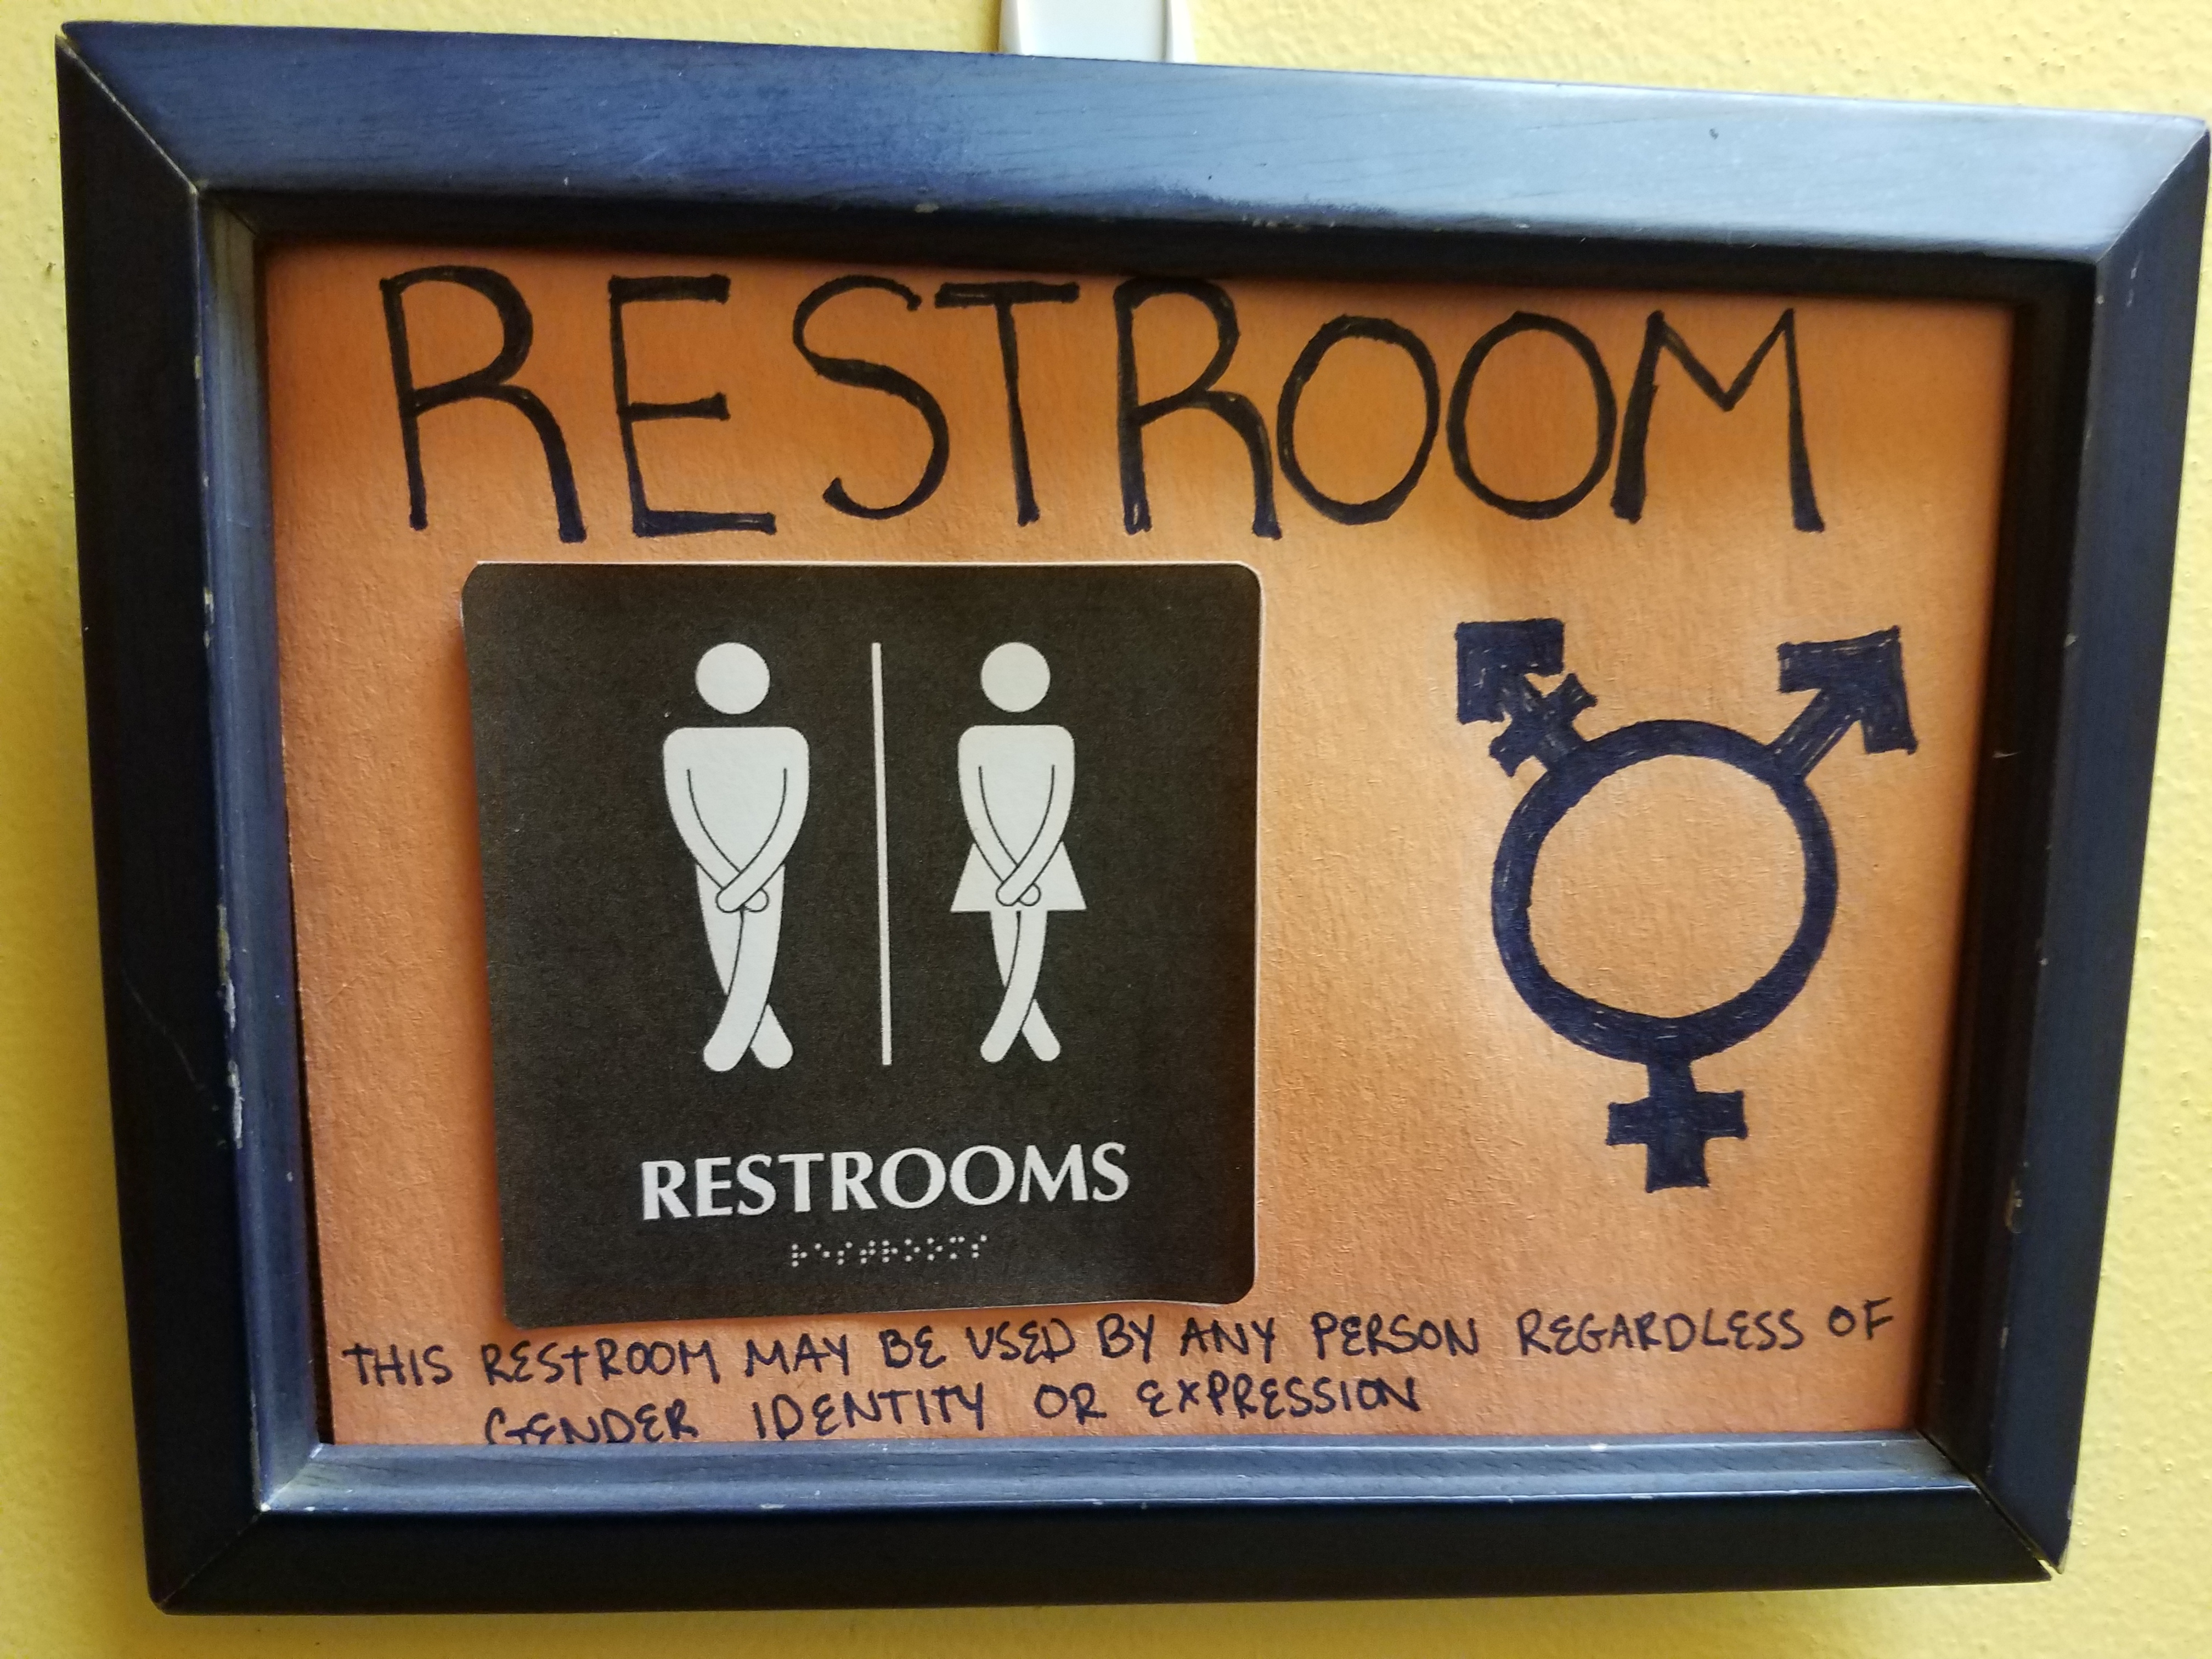 RESTROOM
RESTROOMS
⠗⠑⠎⠞⠗⠕⠕⠍⠎
THIS RESTROOM MAY BE USED BY ANY PERSON REGARDLESS OF
GENDER IDENTITY OR EXPRESSION